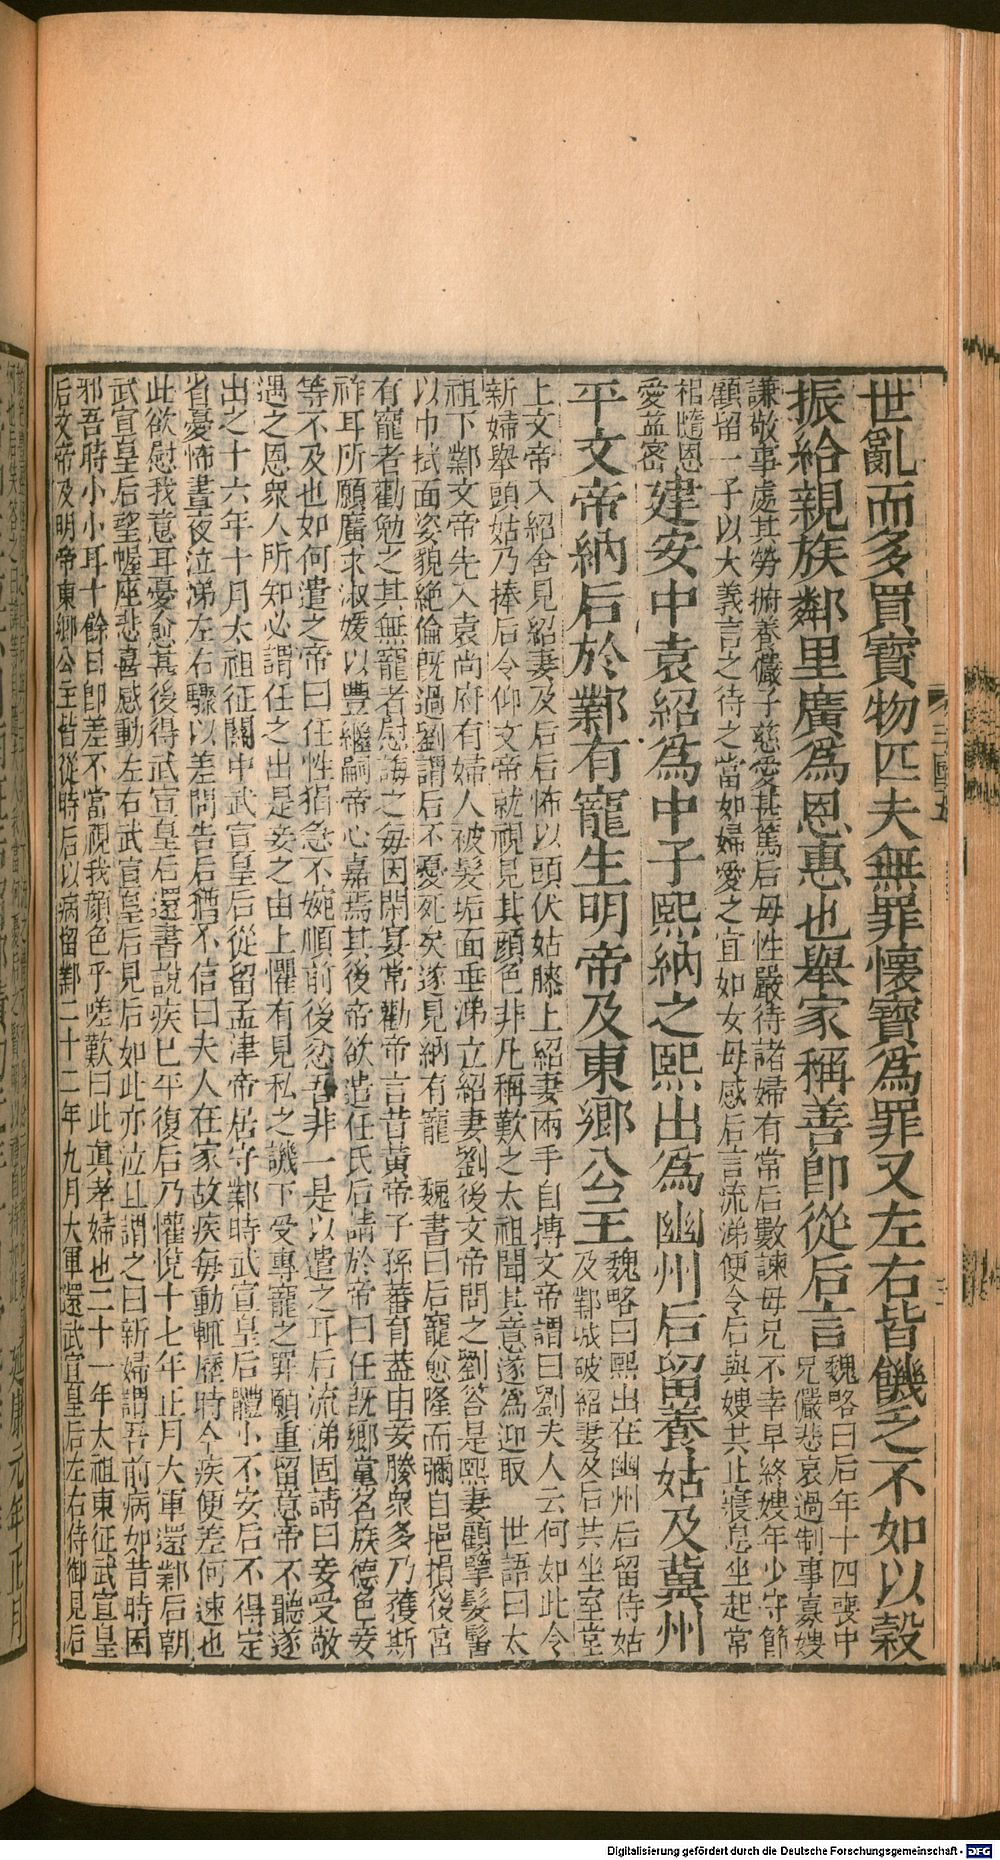 世亂而多買寶物匹夫無罪懷寶爲罪又左右皆饑乏不如以穀
振給親族鄰里廣爲恩惠也舉家稱善即從后言
魏略曰后年十四喪中
兄儼悲哀過制事寡嫂
謙敬事處其勞拊養儼子慈愛甚篤后母性嚴待諸婦有常后數諫母兄不幸早終嫂年少守節
顧留一子以大義言之待之當如婦愛之宜如女母感后言流涕便令后與嫂共止寢息坐起常
相隨恩
愛益密
建安中袁紹爲中子熙納之熙出爲幽州后留養姑及冀州
平文帝納后於鄴有寵生明帝及東鄉公主
魏略曰熙出在幽州后留侍姑
及鄴城破紹妻及后共坐室堂
上文帝入紹舍見紹妻及后后怖以頭伏姑膝上紹妻兩手自搏文帝謂曰劉夫人云何如此令
新婦舉頭姑乃捧后令仰文帝就視見其顔色非凡稱歎之太祖聞其意遂爲迎取 世語曰太
祖下鄴文帝先入袁尚府有婦人被髮垢面垂涕立紹妻劉後文帝問之劉荅是熙妻顧擥髮髻
以巾拭面姿貌絶倫既過劉謂后不憂死矣遂見納有寵 魏書曰后寵愈隆而彌自挹損後宮
有寵者勸勉之其無寵者慰誨之每因閑宴常勸帝言昔黃帝子孫蕃育蓋由妾媵衆多乃獲斯
祚耳所願廣求淑媛以豐繼嗣帝心嘉焉其後帝欲遣任氏后請於帝曰任既鄉黨名族德色妾
等不及也如何遣之帝曰任性狷急不婉順前後忿吾非一是以遣之耳后流涕固請曰妾受敬
遇之恩衆人所知必謂任之出是妾之由上懼有見私之譏下受專寵之罪願重留意帝不聽遂
出之十六年十月太祖征關中武宣皇后從留孟津帝居守鄴時武宣皇后體小不安后不得定
省憂怖晝夜泣涕左右驟以差問告后猶不信曰夫人在家故疾每動輒歷時今疾便差何速也
此欲慰我意耳憂愈甚後得武宣皇后還書說疾已平復后乃懽悅十七年正月大軍還鄴后朝
武宣皇后望幄座悲喜感動左右武宣皇后見后如此亦泣且謂之曰新婦謂吾前病如昔時困
邪吾時小小耳十餘日即差不當視我顔色乎嗟歎曰此眞孝婦也二十一年太祖東征武宣皇
后文帝及明帝東鄉公主皆從時后以病留鄴二十二年九月大軍還武宣皇后左右侍御見后
延康元年正月
Digitalisierung gefördert durch die Deutsche Forschungsgemeinschaft - DFG